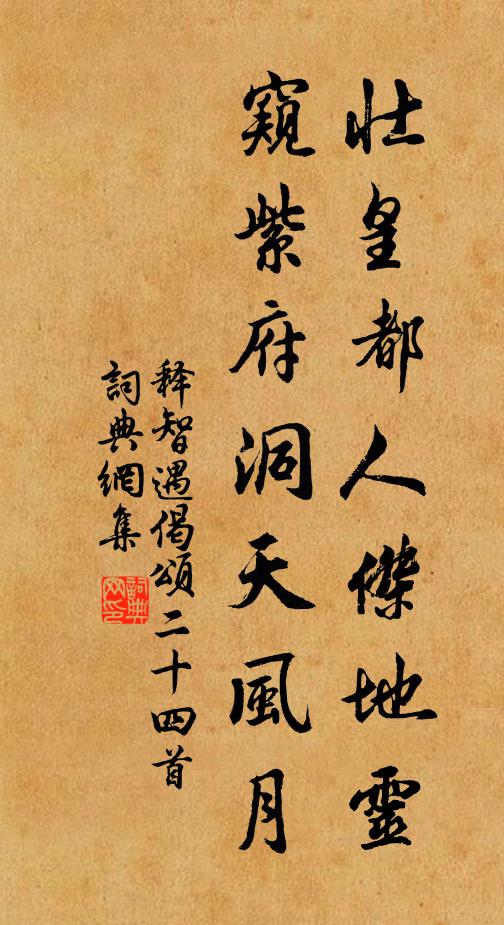 壯皇都人傑地靈
窺紫府洞天風月
释智遇偈頌二十四首
詞典網集
詞典網印